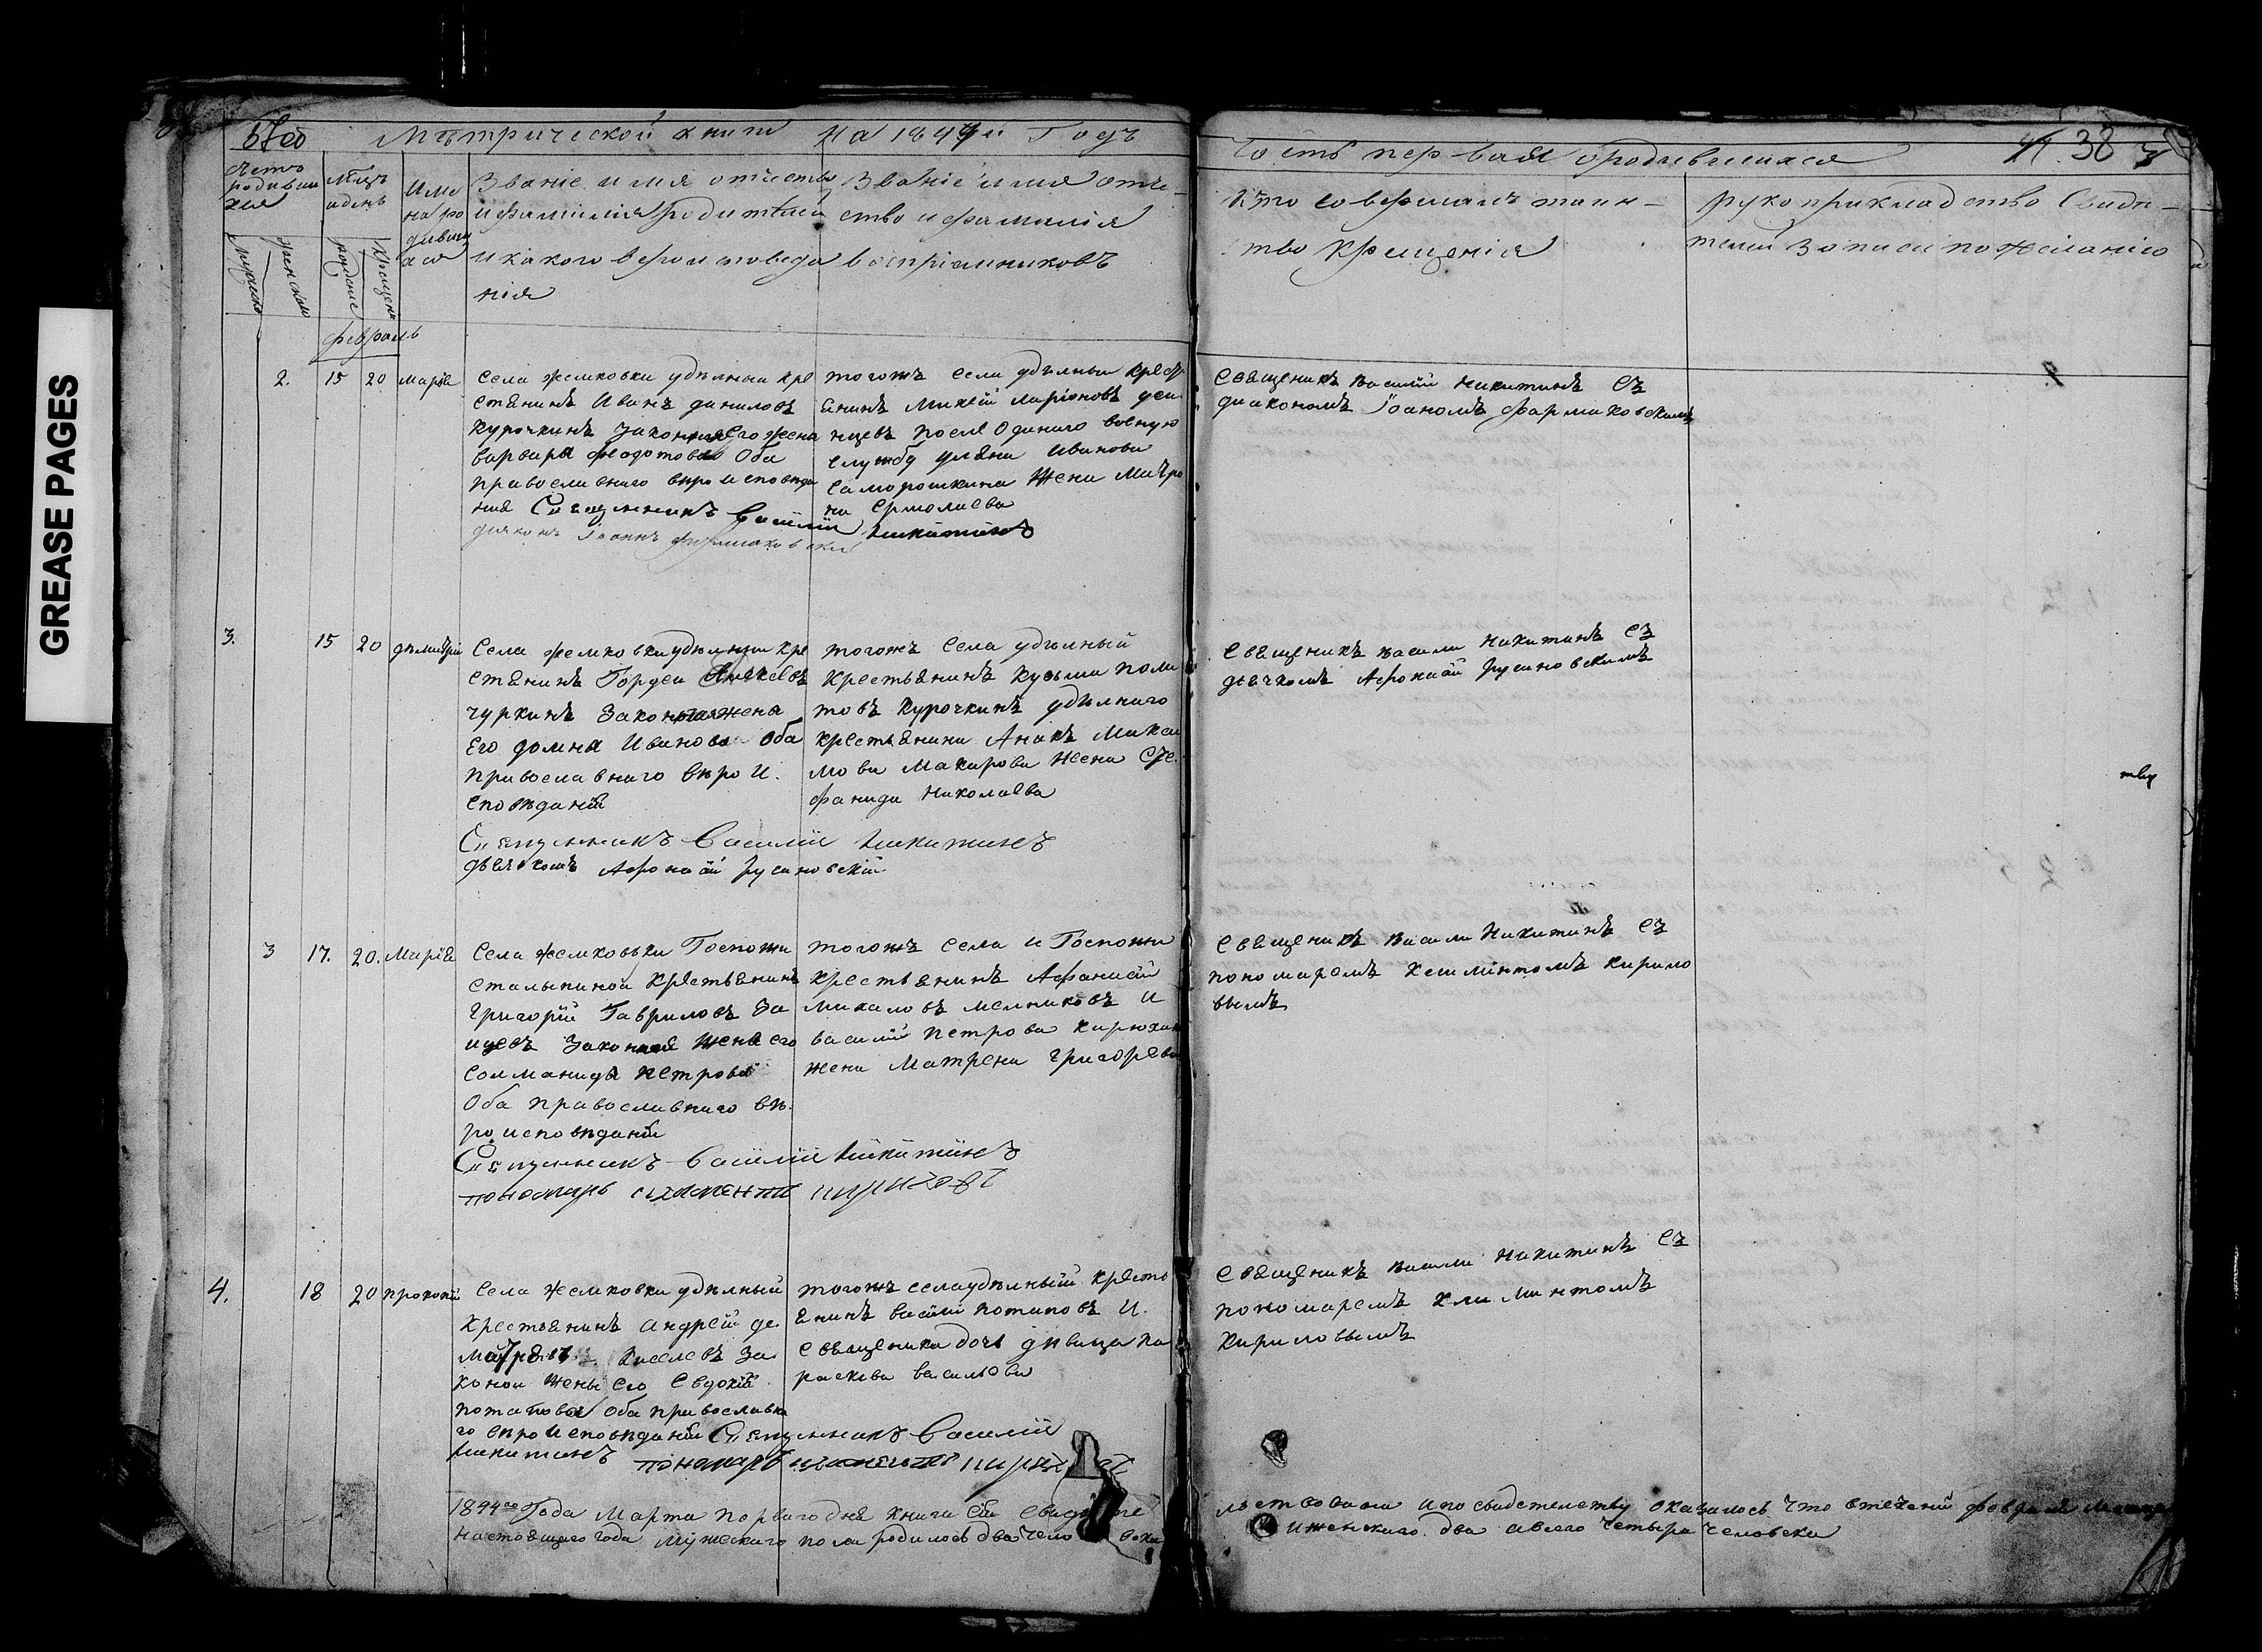 GREASE PAGES
Мѣтрической книги на 1844й Годъ
Часть первая о родившихся
38
Счетъ родивши хся
Мѣцъ и день
Имена родивши хся
Званіе имя отчество и фамилія родителей и какого вероисповеда нія
Званіе имя отче ство и фамилія воспріемниковъ
Кто совершалъ таин ство крещенія
рукоприкладство свиде телей записи по желанію
мужеска
женска
рожденіе
крещеніе
февраль
2. 15 20 Марія
Села жемковки удѣлный кре
стянинъ Иванъ даниловъ
Курочкинъ законная его жена
варвара федотова Оба
православнаго вѣроисповеда
ния Священникъ Василій Никитинъ
дияконъ Іоаннъ фармаковскій
тогожъ села удѣлный крест
янинъ Михей ларіоновъ
службу уляна иванова
Саморошкина жена Матро
на ермолаева
Свещеникъ василій Никитинъ Съ
диакономъ Іоаномъ фармаковскимъ
3. 15 20 дьмитрій
Села жемковки удѣлный кре
стянинъ Гордеи
чуркинъ законная жена
Его домна Иванова Оба
православнаго вѣрои
споведаній
Священникъ Василій Никитинъ
дьячокъ Афонасій русановскій
тогожъ Села удѣлный
Крестьянинъ Кузьма
товъ Курочкинъ удѣлнаго
крестьянина
мова Макарова жена Сте
фанида Николаева
Свещеникъ васили Никитинъ Съ
дьячкомъ Афонасій русановскимъ
3 17. 20. Марія
Села жемковки Госпожи
сталыпиной крестьянинъ
Григорій Гавриловъ За
ицевъ Законная жена его
Соломанида петрова
Оба православнаго вѣ
роисповѣданій
Священникъ Василій Никитинъ
пономарь климентъ кириловъ
тогожъ села и Госпожи
крестьянинъ Афанасій
Михаловъ мелниковъ И
василій Петрова Кирюхин
жена Матрена григорева
Свещеникъ васили Никитинъ Съ
пономаремъ Климінтомъ Кирило
вымъ
тву
4. 18 20 прокопій
Села жемковки удѣлный
Крестьянинъ андрей де
Киселевъ за
коной жены его Евдокій
потапова Оба православна
го вероисповѣданій Священникъ Василій
Никитинъ пономарь климентъ
тогожъ села удѣлный кресть
янинъ василій потаповъ И
Свещеника дочь дѣвица па
раскева васильева
Свещеникъ васили Никитинъ Съ
пономаремъ Климинтомъ
Кириловымъ
1844го Года Марта перваго дня книга Сія свидете льствована и по свидетелству оказалось что втеченіи февраля месяца
настоящаго года мужескаго пола родилось два человека и женскаго два а всего четыре человека